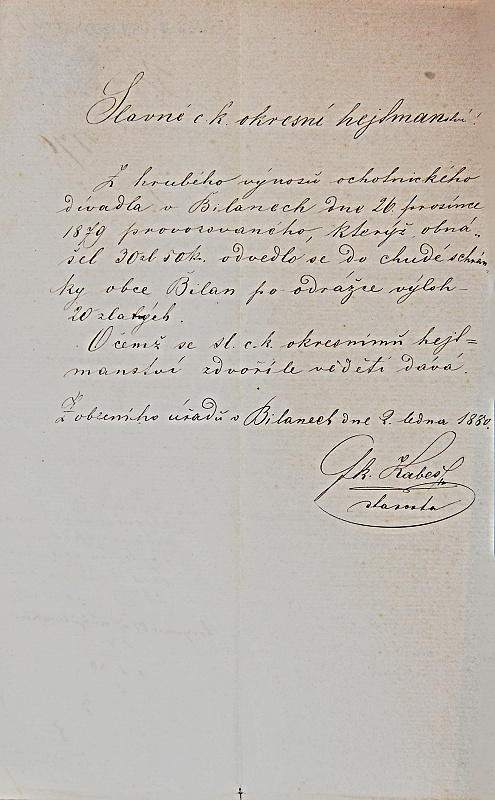 Slavné c. k. okresní hejtmanství!
Z hrubého výnosu ochotnického
divadla v Bilanech dne 26. prosince
1879 provozovaného, kterýž obná-
šel 30zl 50k. odvedlo se do chudé schrán
ky obce Bilan po odrážce výloh-
20 zlatých.
Očemž se sl. c. k. okresnímu hejt-
manství zdvořile věděti dává.
Z obecního úřadu v Bilanech dne 2. ledna 1880.
starosta